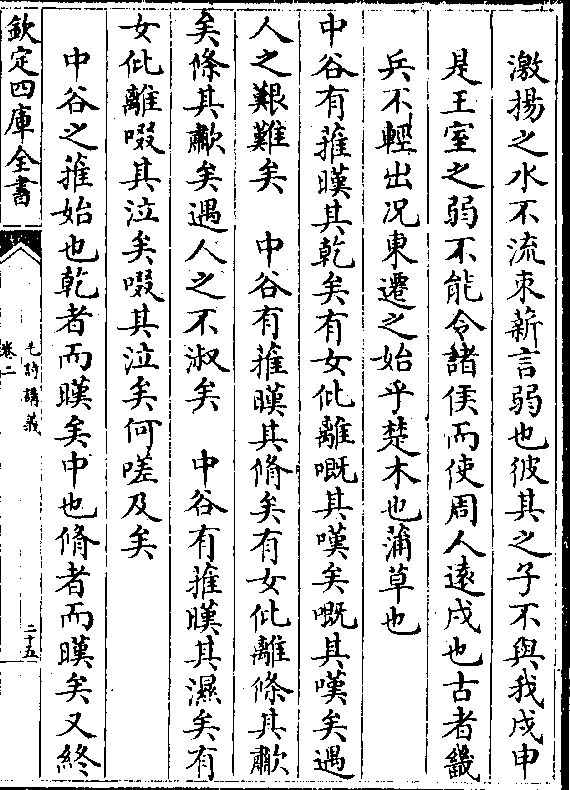 激揚之水不流束薪言弱也彼其之子不與我戍申
是王室之弱不能令諸侯而使周人遠戍也古者畿
兵不輕出況東遷之始乎楚木也蒲草也
中谷有蓷暵其乾矣有女仳離嘅其嘆矣嘅其嘆矣遇
人之艱難矣　中谷有蓷暵其脩矣有女仳離條其歗
矣條其歗矣遇人之不淑矣　中谷有蓷暵其濕矣有
女仳離啜其泣矣啜其泣矣何嗟及矣
中谷之蓷始也乾者而暵矣中也脩者而暵矣又終
欽定四庫全書
毛詩講義
卷二
二十五